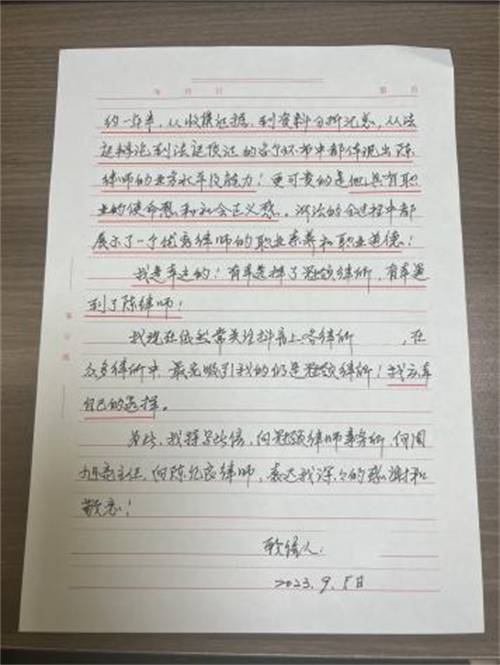 年 月 日 第 页
约一年，从收集证据，到资料分析汇总，从法
庭辩论到法庭质证的各个环节中都体现出陈
律师的业务水平及能力！更可贵的是他具有职
业的使命感和社会正义感。涉法的全过程中都
展示了一个优秀律师的职业素养和职业道德！
我是幸运的！有幸选择了冠领律所，有幸遇
到了陈律师！
我现在依然常关注抖音上各律所 ，在
众多律所中，最先吸引我的仍是冠领律所！我庆幸
自己的选择。
为此，我择写此信，向冠领律师事务所，向周
旭亮主任，向陈 律师，表达我深深的感谢和
敬意！
致信人：
2023.9.5日